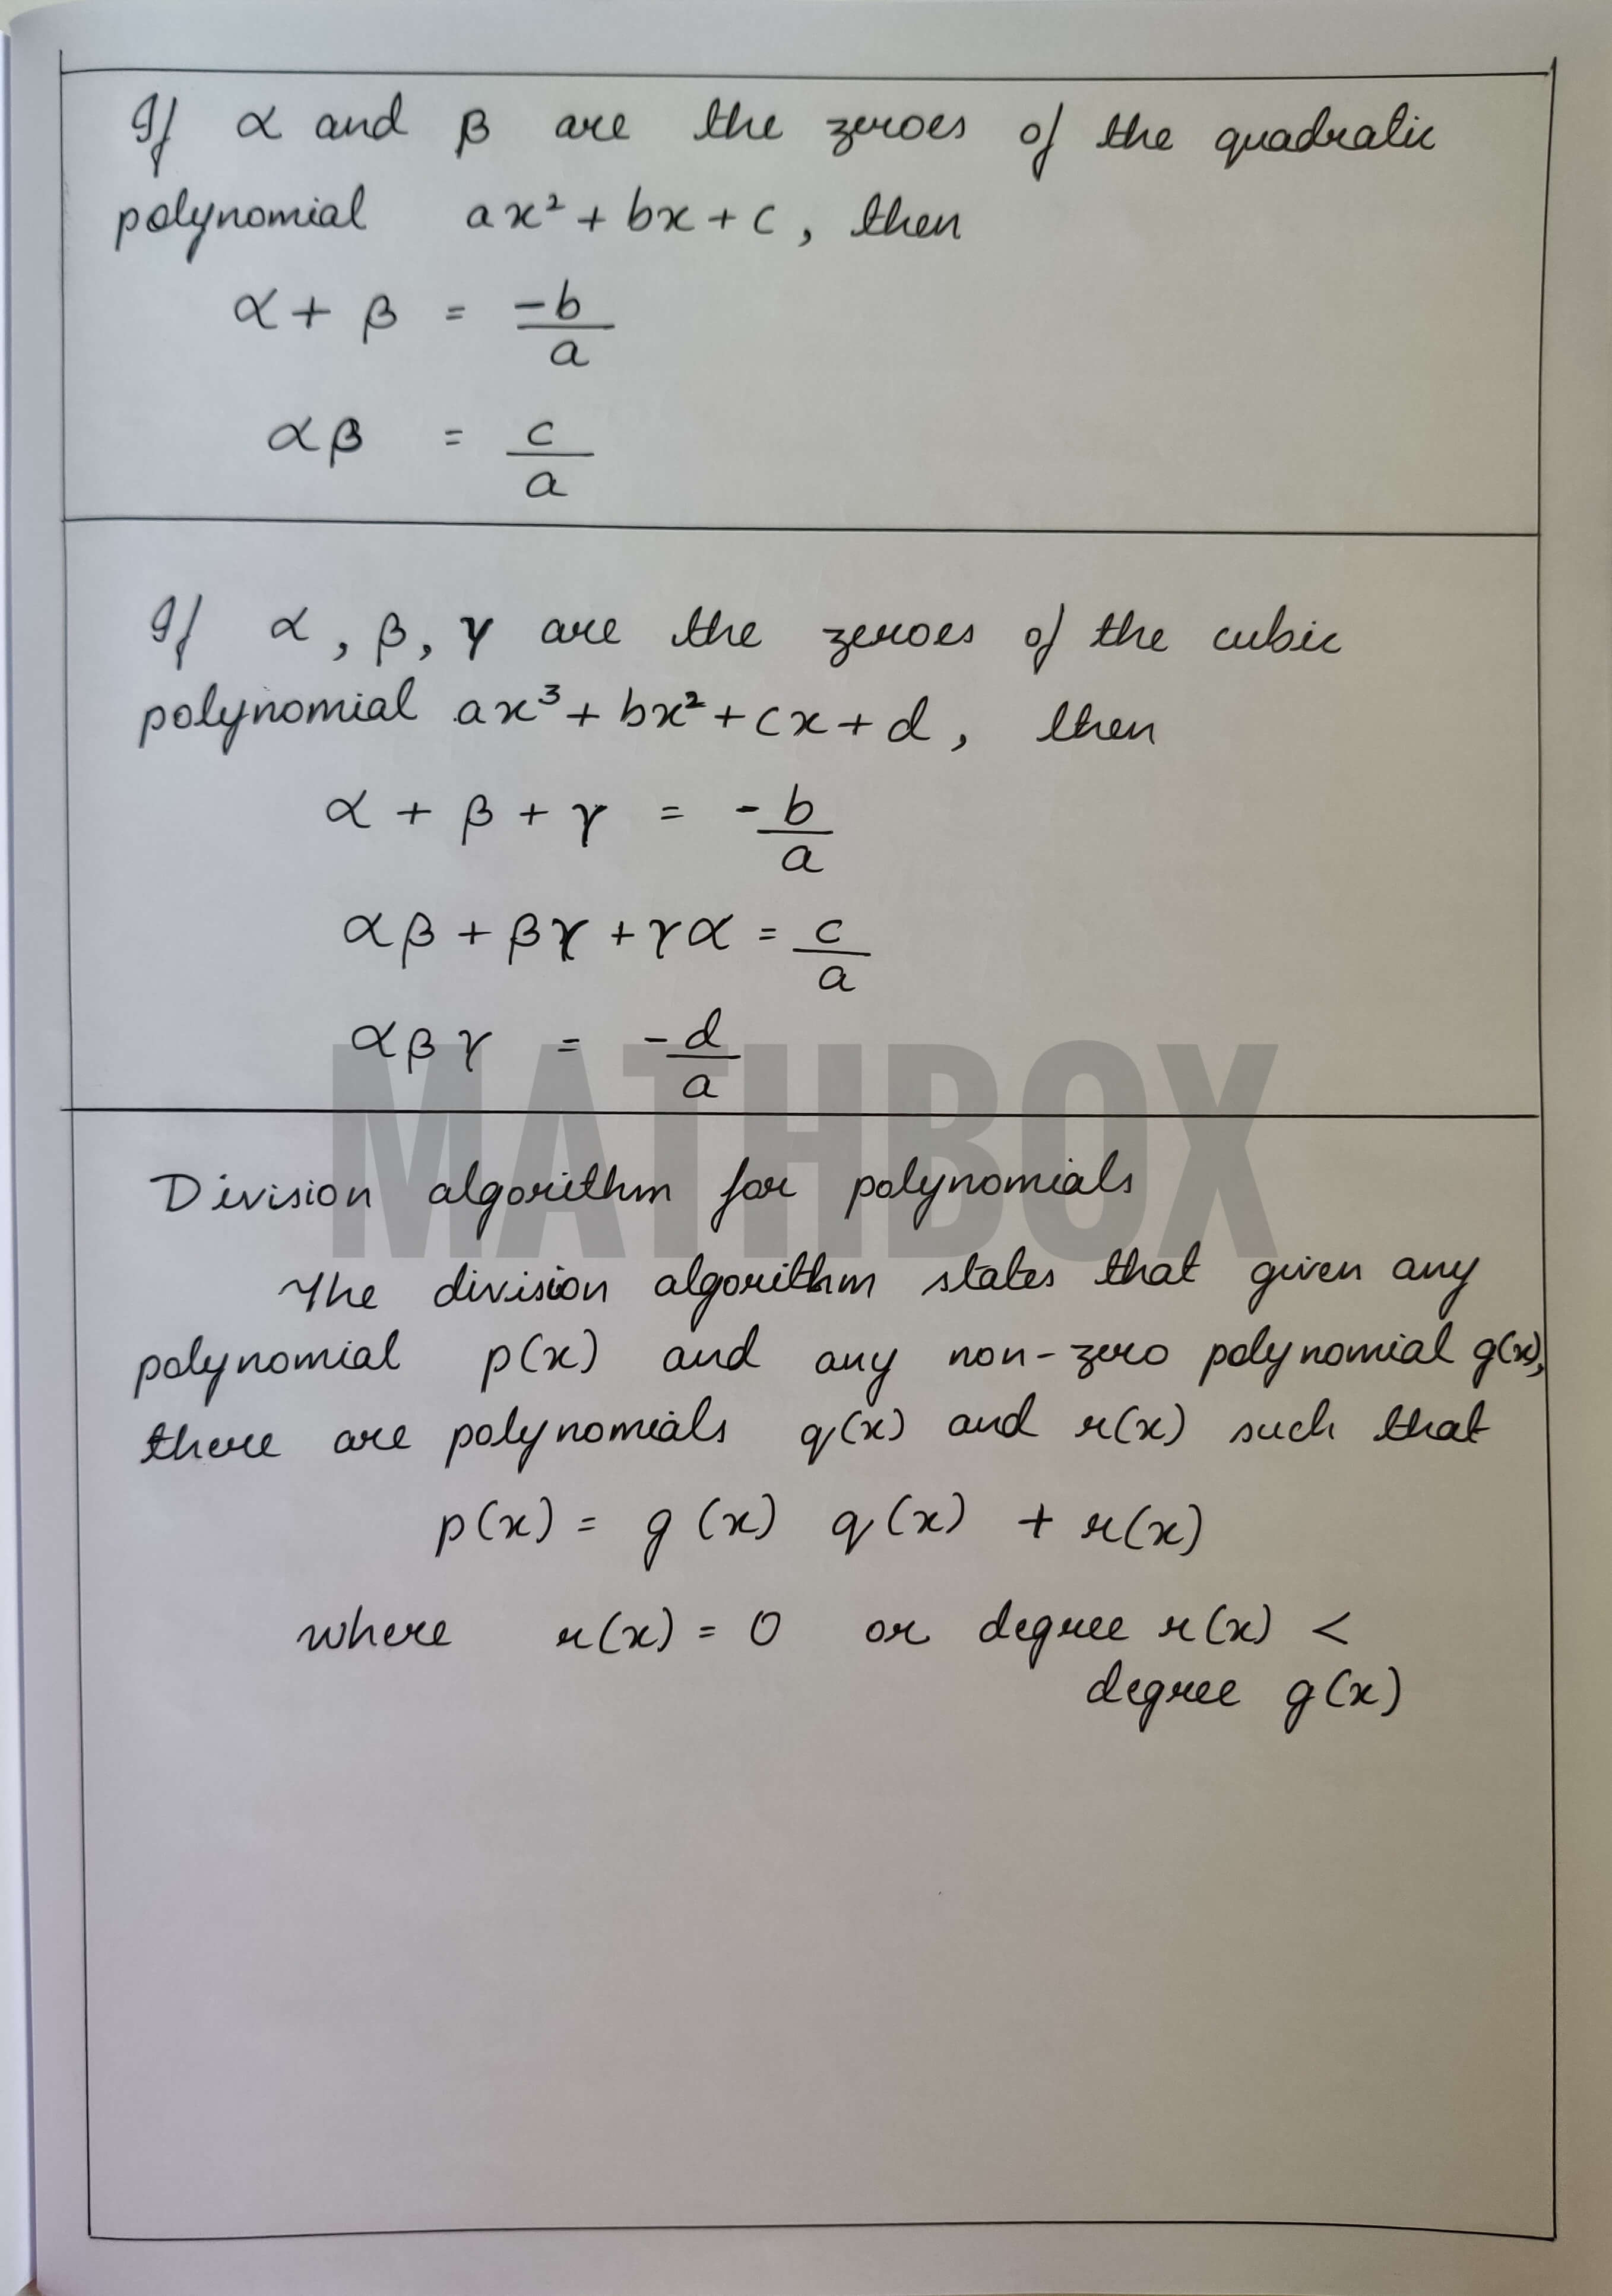 If α and β are the zeroes of the quadratic
polynomial ax² + bx + c, then
α + β = -b/a
αβ = c/a
If α, β, γ are the zeroes of the cubic
polynomial ax³ + bx² + cx + d, then
α + β + γ = -b/a
αβ + βγ + γα = c/a
αβγ = -d/a
MATHBOX
Division algorithm for polynomials
The division algorithm states that given any
polynomial p(x) and any non-zero polynomial g(x),
there are polynomials q(x) and r(x) such that
p(x) = g(x) q(x) + r(x)
where r(x) = 0 or degree r(x) <
degree g(x)